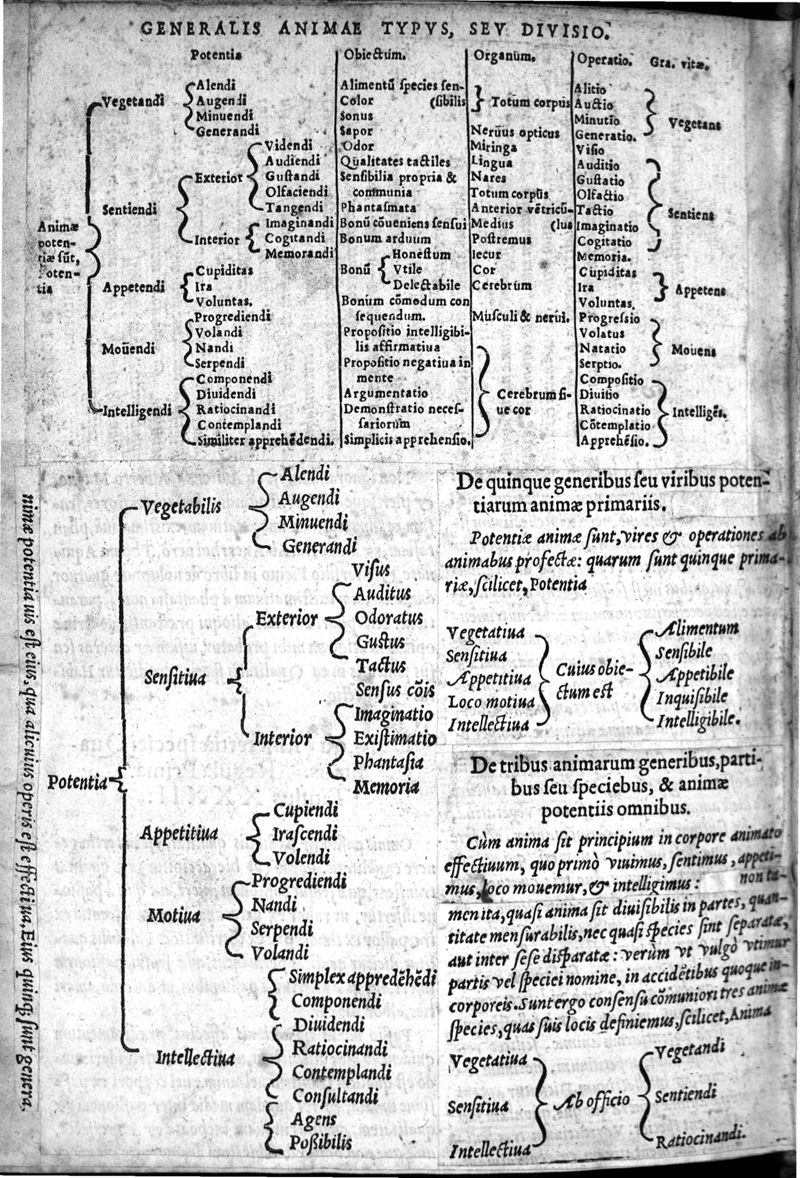 GENERALIS ANIMAE TYPVS, SEV DIVISIO.
Potentia
Obiectum.
Organum.
Operatio.
Gra. vitæ.
Animæ
poten-
tiæ sūt,
Poten-
tia
Vegetandi
Alendi
Augendi
Minuendi
Generandi
Sentiendi
Exterior
Videndi
Audiendi
Gustandi
Olfaciendi
Tangendi
Interior
Imaginandi
Cogitandi
Memorandi
Appetendi
Cupiditas
Ira
Voluntas.
Moūendi
Progrediendi
Volandi
Nandi
Serpendi
Intelligendi
Componendi
Diuidendi
Ratiocinandi
Contemplandi
Similiter apprehēdendi.
Alimentū species sen-
Color (sibilis
Sonus
Sapor
Odor
Qualitates tactiles
Sensibilia propria &
communia
Phantasmata
Bonū cōueniens sensui
Bonum arduum
Bonū
Honestum
Vtile
Delectabile
Bonum cōmodum con
sequendum.
Propositio intelligibi-
lis affirmatiua
Propositio negatiua in
mente
Argumentatio
Demonstratio neces-
sariorum
Simplicis apprehensio.
Totum corpus
Neruus opticus
Miringa
Lingua
Nares
Totum corpūs
Anterior vētricū-
Medius (lus
Postremus
Iecur
Cor
Cerebrum
Musculi & nerui.
Cerebrum si-
ue cor
Alitio
Auctio
Minutio
Generatio.
Visio
Auditio
Gustatio
Olfactio
Tactio
Imaginatio
Cogitatio
Memoria.
Cupiditas
Ira
Voluntas.
Progressio
Volatus
Natatio
Serptio.
Compositio
Diuisio
Ratiocinatio
Cōtemplatio
Apprehēsio.
Vegetans
Sentiens
Appetens
Mouens
Intelligēs.
nimæ potentia uis est eius, qua alicuius operis est effectiua. Eius quinq; sunt genera.
Potentia
Vegetabilis
Alendi
Augendi
Minuendi
Generandi
Sensitiua
Exterior
Visus
Auditus
Odoratus
Gustus
Tactus
Interior
Sensus cōis
Imaginatio
Existimatio
Phantasia
Memoria
Appetitiua
Cupiendi
Irascendi
Volendi
Motiua
Progrediendi
Nandi
Serpendi
Volandi
Intellectiua
Simplex appredēhēdi
Componendi
Diuidendi
Ratiocinandi
Contemplandi
Consultandi
Agens
Poßibilis
De quinque generibus seu viribus poten-
tiarum animæ primariis.
Potentiæ animæ sunt, vires & operationes ab
animabus profectæ: quarum sunt quinque prima-
riæ, scilicet, Potentia
Vegetatiua
Sensitiua
Appetitiua
Loco motiua
Intellectiua
Cuius obie-
ctum est
Alimentum
Sensibile
Appetibile
Inquisibile
Intelligibile.
De tribus animarum generibus, parti-
bus seu speciebus, & animæ
potentiis omnibus.
Cùm anima sit principium in corpore animato
effectiuum, quo primò viuimus, sentimus, appeti-
mus, loco mouemur, & intelligimus: non ta-
men ita, quasi anima sit diuisibilis in partes, quan-
titate mensurabilis, nec quasi species sint separatæ,
aut inter sese disparatæ: verùm vt vulgò vtimur
partis vel speciei nomine, in accidētibus quoque in-
corporeis. Sunt ergo consensu cōmuniori tres animæ
species, quas suis locis definiemus, scilicet, Anima
Vegetatiua
Sensitiua
Intellectiua
Ab officio
Vegetandi
Sentiendi
Ratiocinandi.